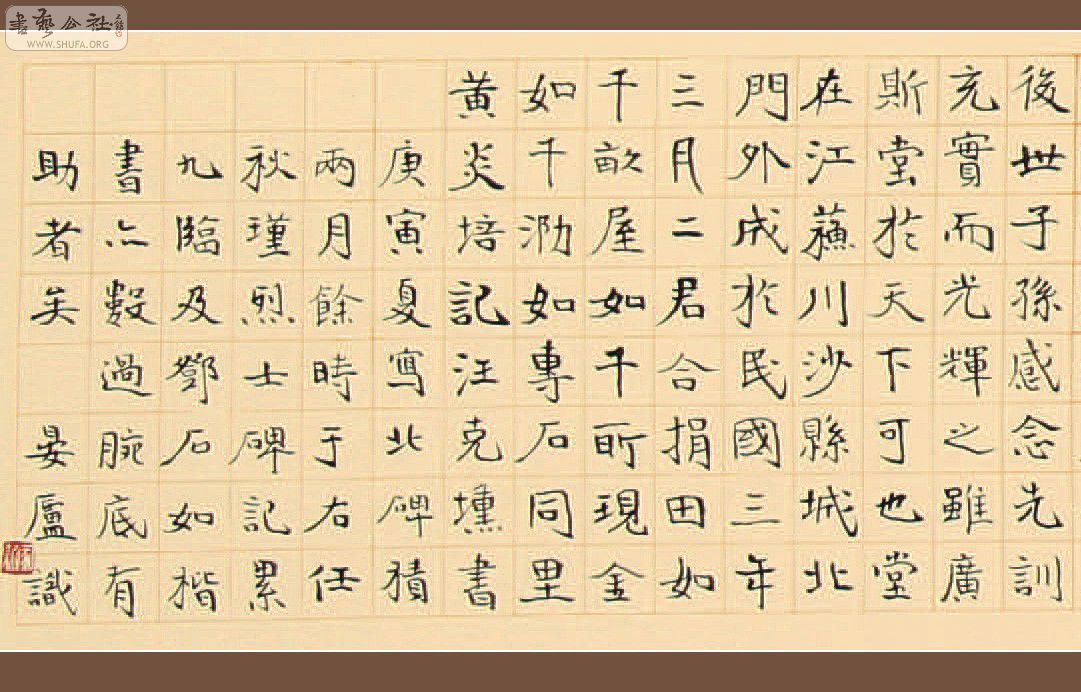 書藝公社
WWW.SHUFA.ORG
後世子孫感念先訓
充實而光輝之雖廣
斯堂於天下可也堂
在江蘇川沙縣城北
門外成於民國三年
三月二君合捐田如
千畝屋如千所現金
如千泐如專石同里
黃炎培記汪克壎書
庚寅夏寫北碑積
兩月餘時于右任
秋瑾烈士碑記累
九臨及鄧石如楷
書六數過腕底有
助者矣 晏廬識